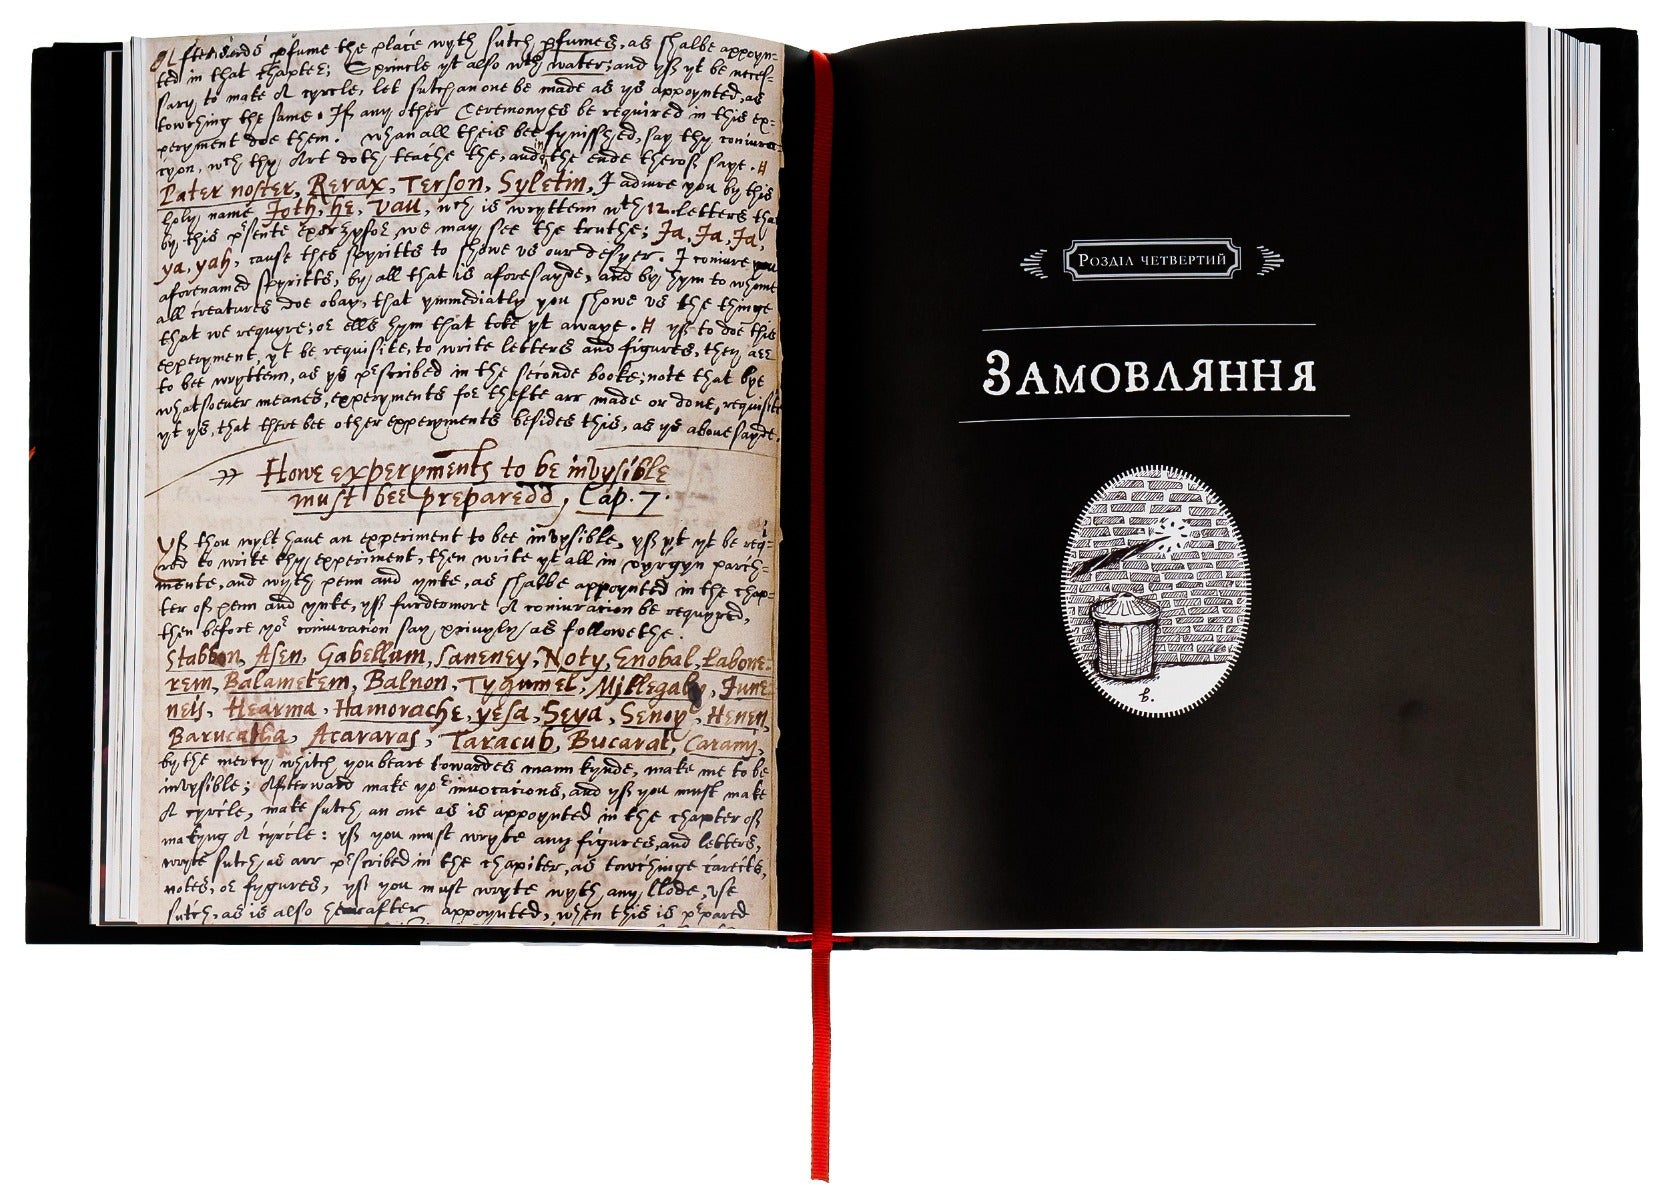 Afterwards pfume the place wyth sutch pfumes, as shalbe appoyn-
ted in that chapter; Sprincle yt also wth water; and yff yt be neces-
sary, to make A cyrcle, let sutch an one be made as ys appoynted, as
towching the same. If any other Ceremonyes be required in this ex-
peryment doe them. Whan all theis bee fynisshed, say thy coniura-
cyon, wch thy Art doth teache the, and in the ende theroff saye. H
Pater noster, Rerax, Terson, Syletin, I adiure you by this
holy name Joth, he, vau, wch is wryttenn wth 12 letters that
by this psente experyment we may see the truthe; Ja, Ja, Ja,
ya, yah, cause thes spyritts to showe vs our desyer. I coniure you
aforenamed spyritts, by all that is aforesayde, and by hym to whome
all creatures doe obay, that ymmediatly you showe vs the thinge
that we requyre; or ells hym that toke yt awaye. H yff to doe this
experyment, yt be requisite, to write letters and figures, they are
to bee wryttenn, as ys pscribed in the seconde booke; note that bye
whatsoever meanes, experyments for thefte arr made or done, requisite
yt ys, that there bee other experyments besides this, as ys abouesayde.
Howe experyments to be invysible
must bee preparedd, Cap. 7.
Yff thou wylt have an experiment to bee invysible, yff yt be requi-
red to write thy experiment, then write yt all in vyrgyn parch-
mente, and wyth penn and ynke, as shalbe appoynted in the chap-
ter off penn and ynke, yff furdermore A coniuracion be requyred,
then before yor coniuracion say privyly as followethe.
Stabbon, Asen, Gabellum, Saneney, Noty, Enobal, Labone-
rem, Balametem, Balnon, Tygumel, Millegaly, June-
neis, Hearma, Hamorache, yesa, Seya, Senoy, Henen,
Barucatha, Acararas, Taracub, Bucarat, Caramy,
by the mercy whitch you beare towardes mann kynde, make me to be
invysible; Afterward make yor invocations, and yff you must make
A cyrcle, make sutch an one as is appoynted in the chapter off
makyng A cyrcle: yff you must wryte any figures, and letters,
wryte sutch, as arr pscribed in the chapiter, as towchinge
notes, or fygures, yff you must wryte wyth any blode, vse
sutch, as is also hereafter appoynted, when this is ppared
Розділ четвертий
Замовляння